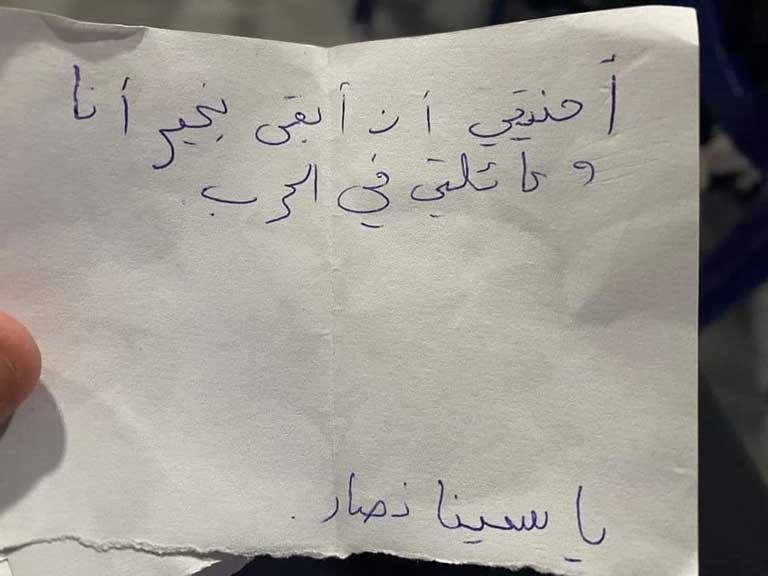 أمنيتي أن أبقى بخير أنا
و عائلتي في الحرب.
ياسينا نصار.